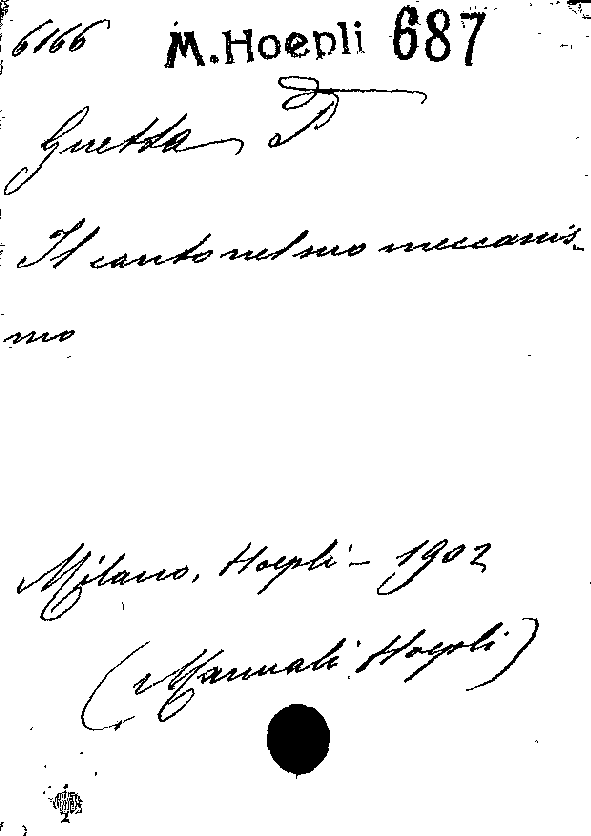 6166 M. Hoepli 687
Guetta P
Il canto nel suo meccanis-
mo
Milano, Hoepli - 1902
(Manuali Hoepli)